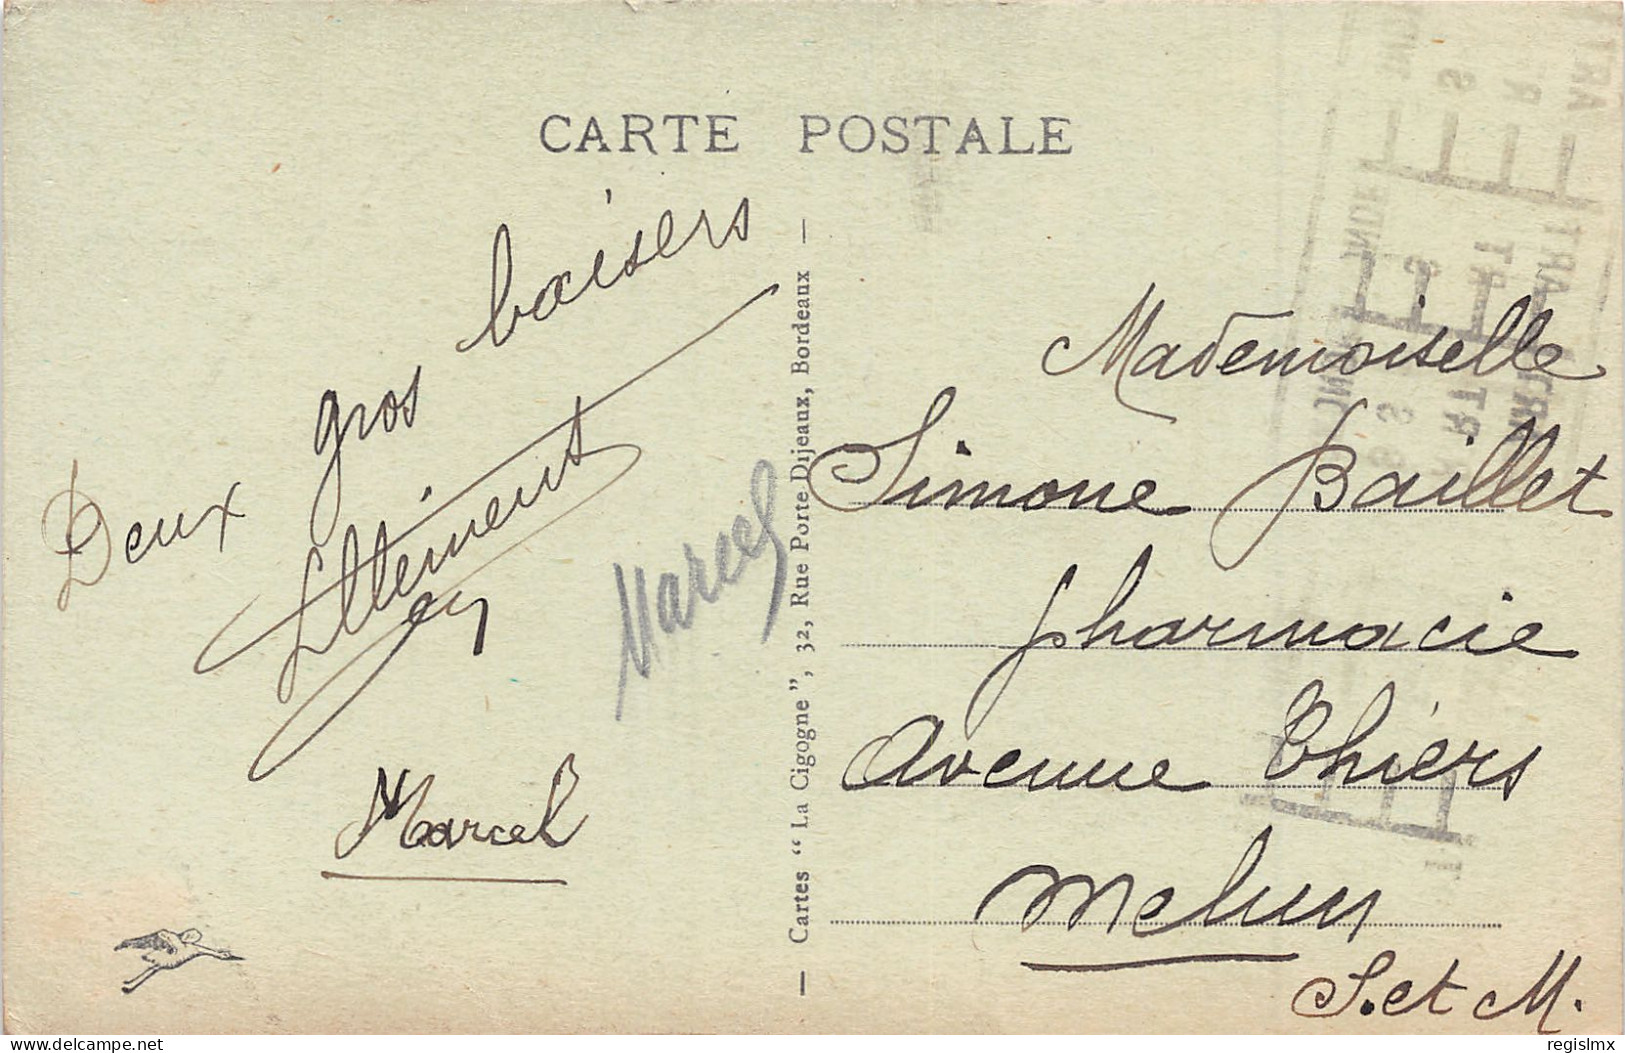 CARTE POSTALE
Deux gros baisers
Marcel
Marcel
— Cartes “ La Cigogne ”, 32, Rue Porte Dijeaux, Bordeaux —
Mademoiselle
Simone Baillet
pharmacie
Avenue Thiers
Melun
S. et M.
delcampe.net
regislmx